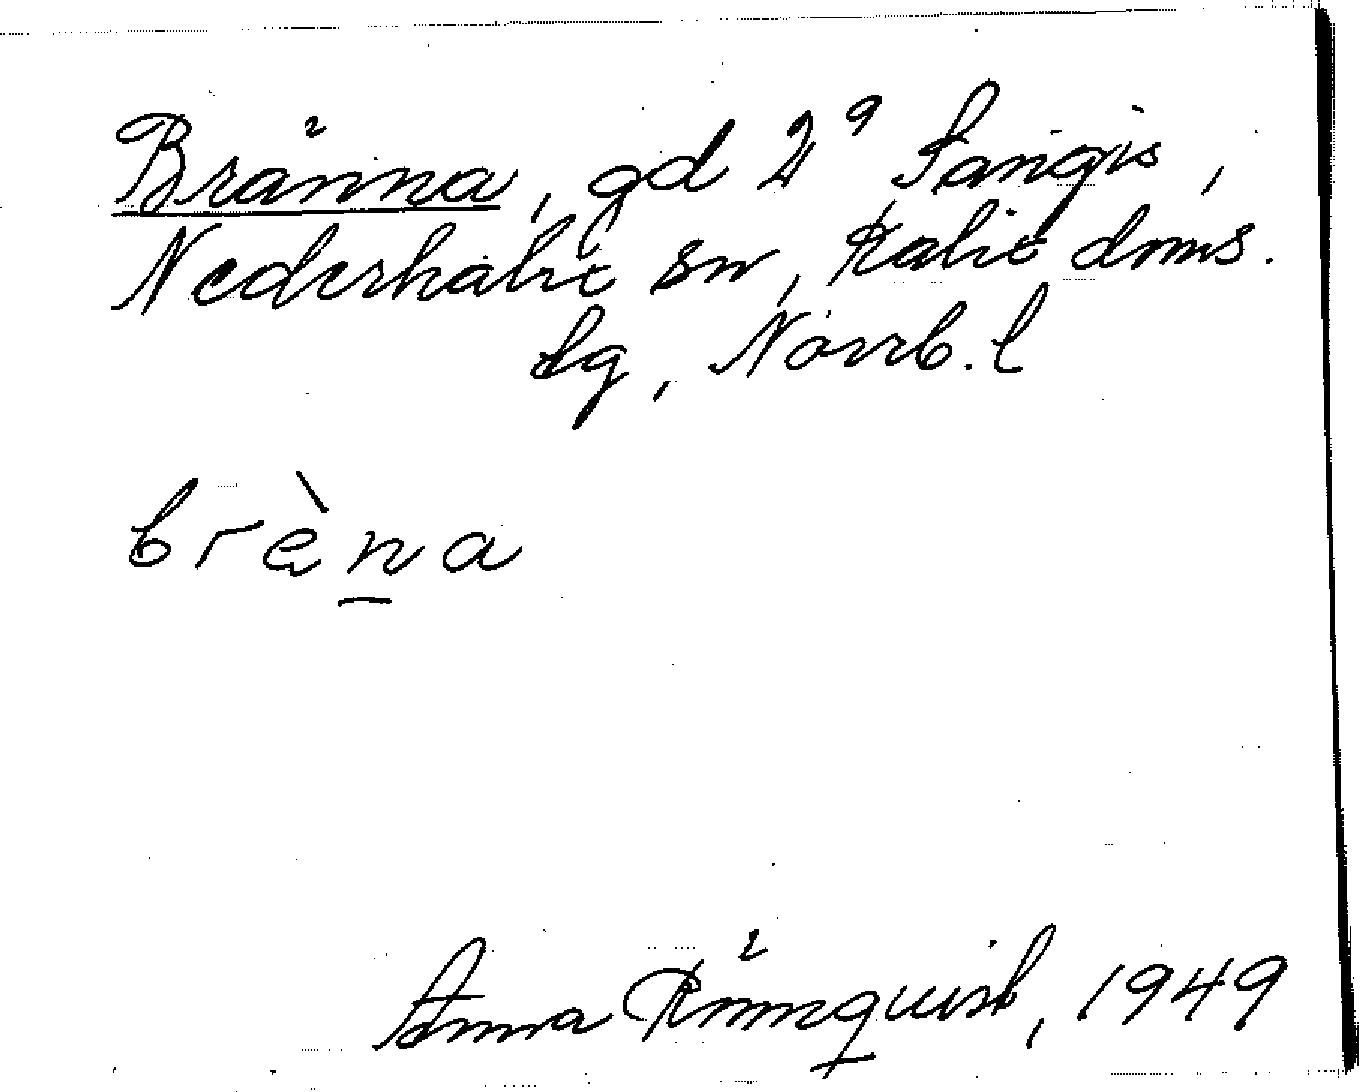 Bränna, gd 2⁹ Sangis,
Nederkalix sn, Kalix dms.
lg, Norrb. l
brèna
Anna Rönnquist, 1949